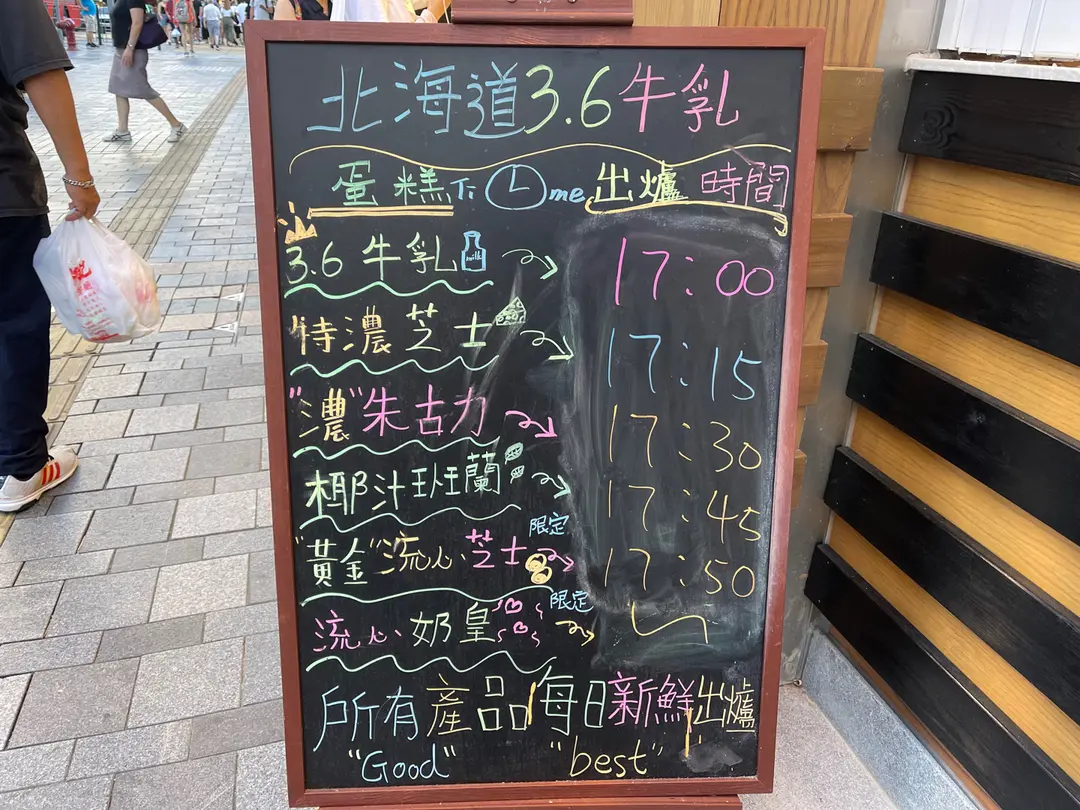 北海道3.6牛乳
蛋糕 Time 出爐時間
3.6牛乳 milk 17:00
特濃芝士 17:15
"濃"朱古力 17:30
椰汁班蘭 17:45
限定
"黃金"流心芝士 17:50
限定
流心奶皇
所有產品每日新鮮出爐
"Good" "best"